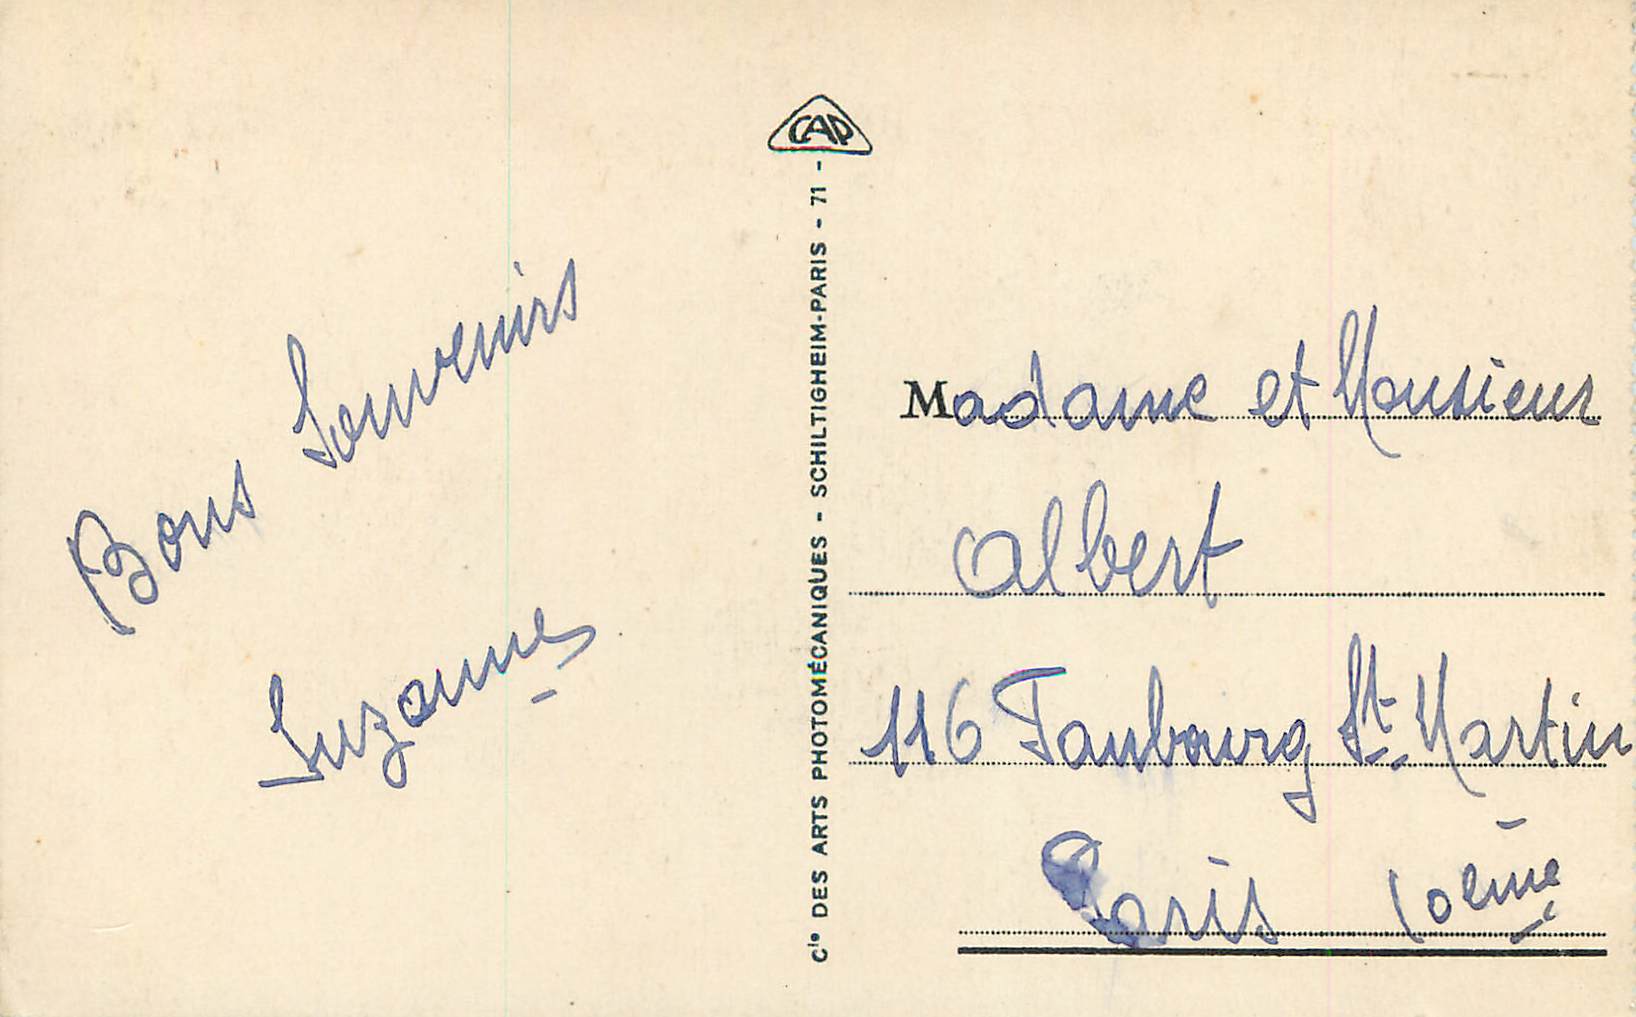 Bons Souvenirs
Suzanne
CAP
Cie DES ARTS PHOTOMÉCANIQUES - SCHILTIGHEIM-PARIS - 71 -
Madame et Monsieur
Albert
116 Faubourg St. Martin
Paris 10ème